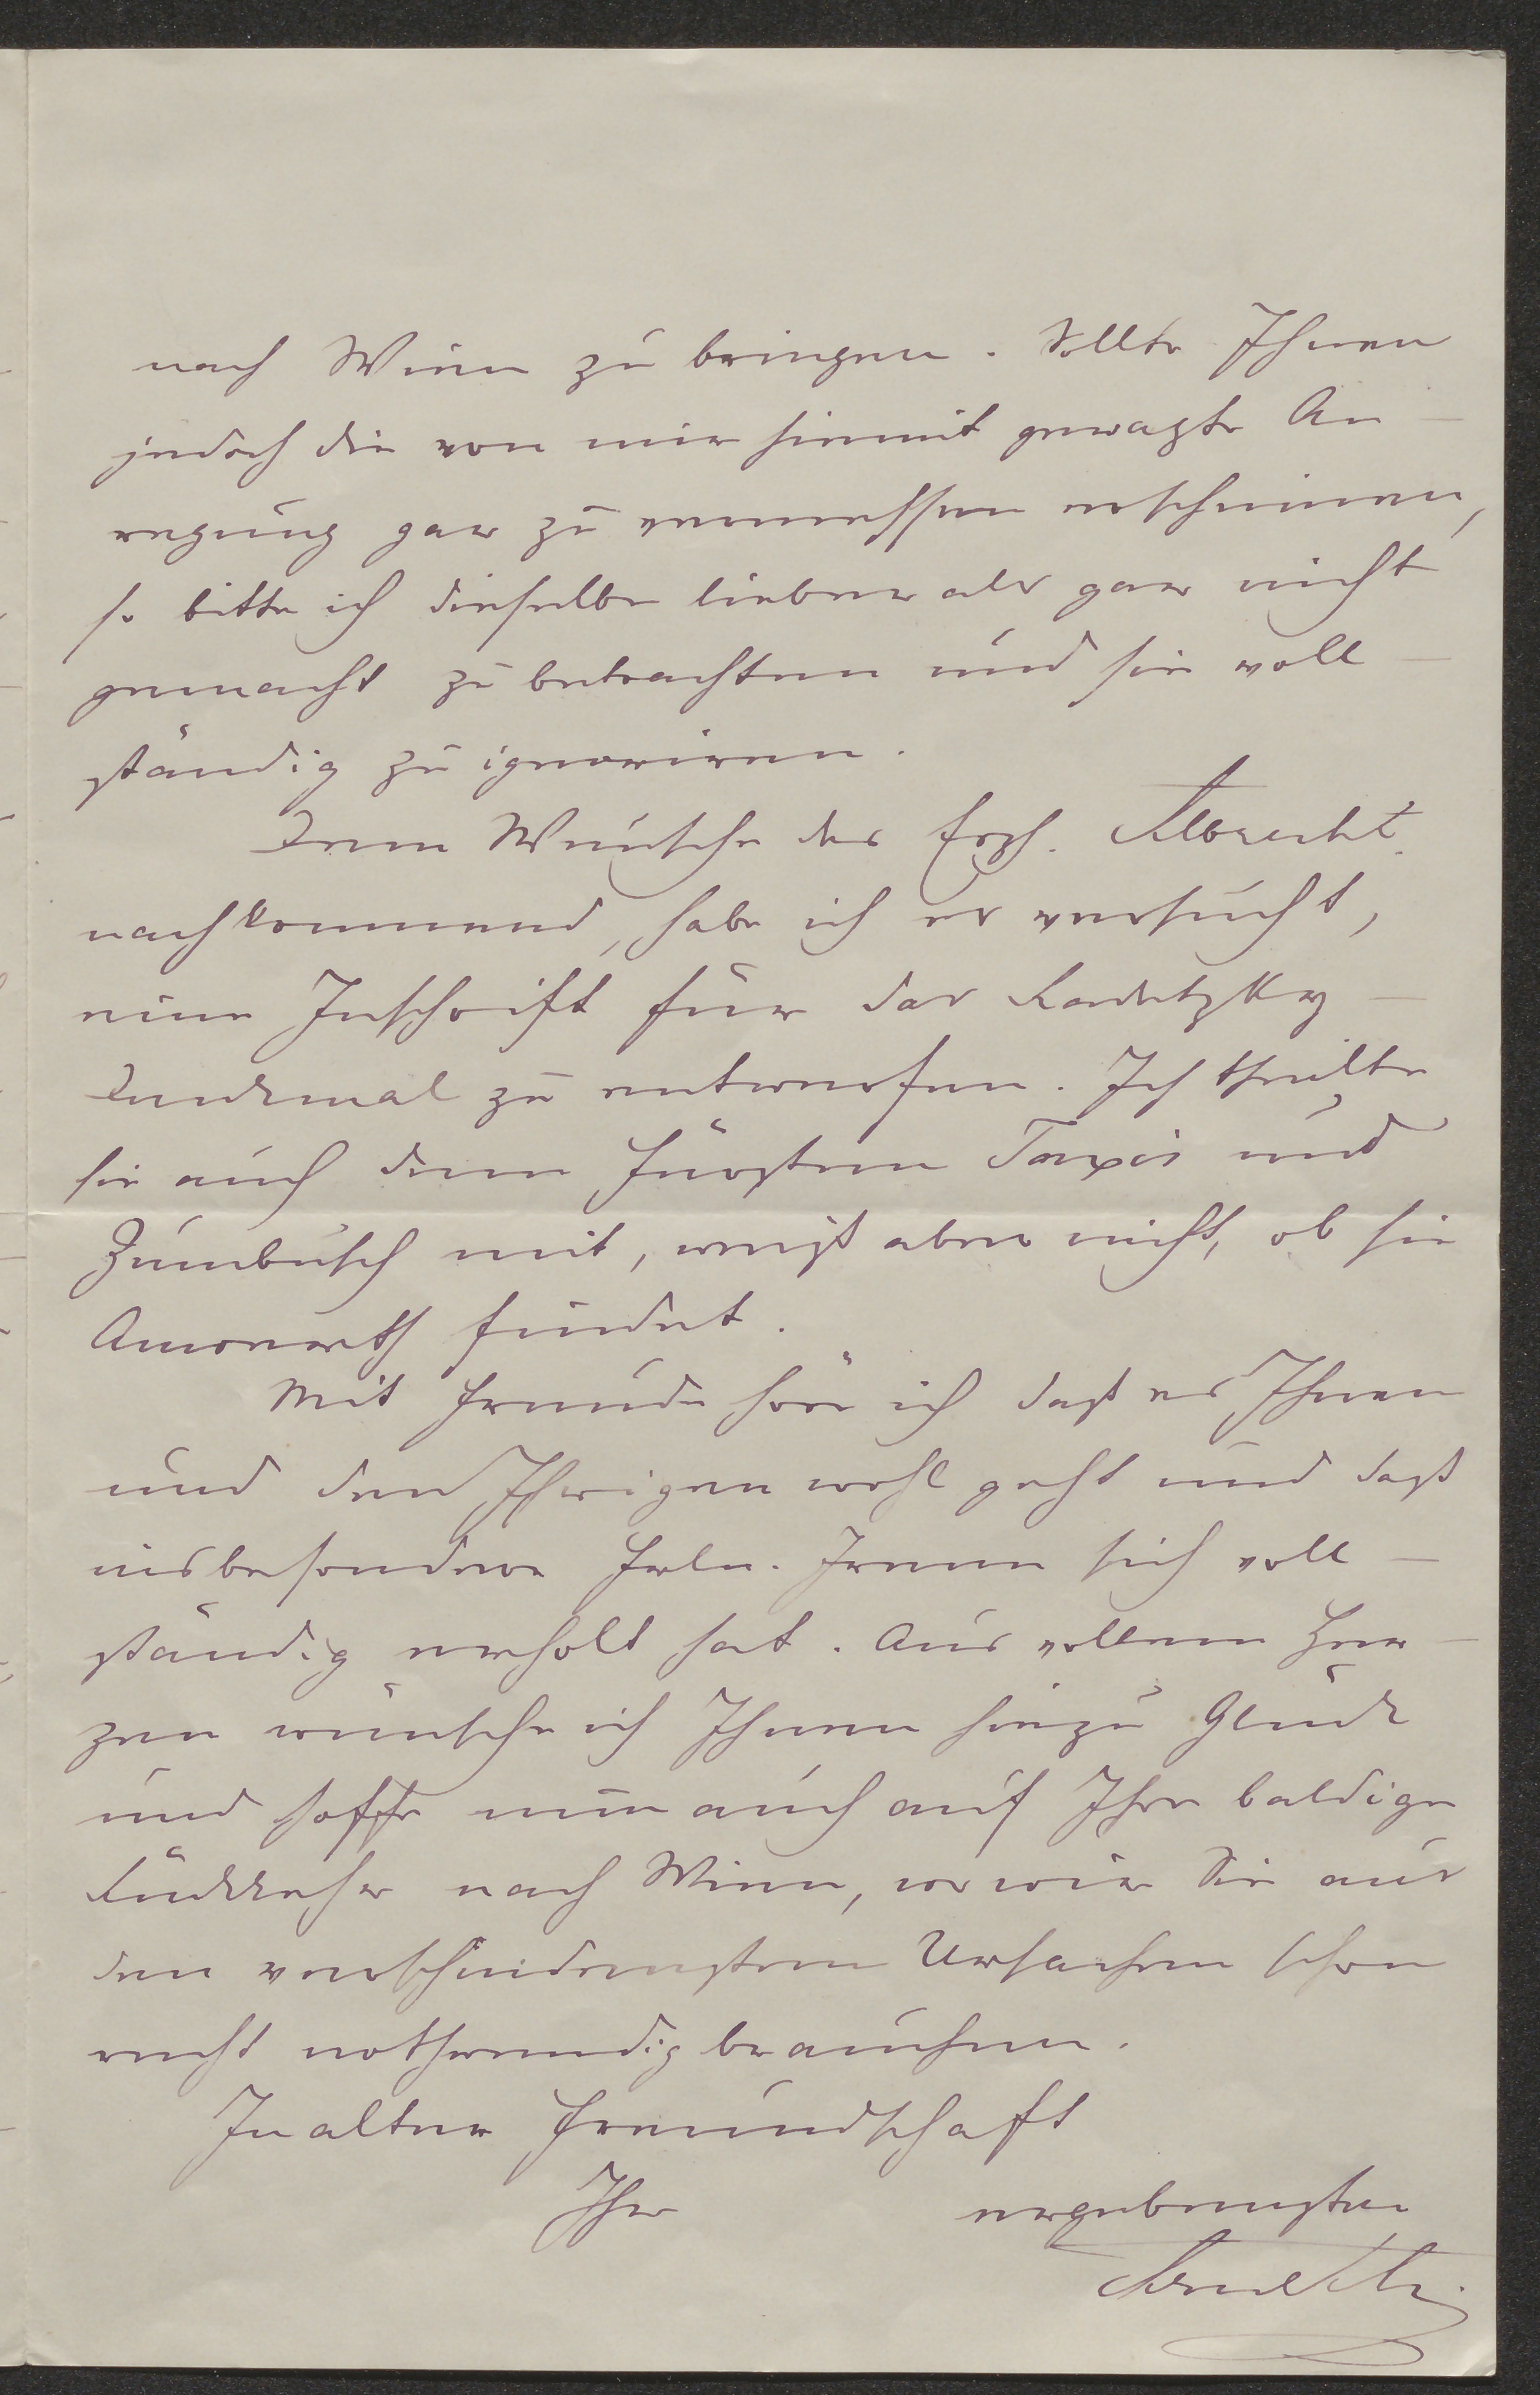 nach Wien zu bringen. Sollte Ihnen
jedoch die von mir hiemit gewagte An-
regung gar zu vermessen erscheinen,
so bitte ich dieselbe lieber als gar nicht
gemacht zu betrachten und sie voll-
ständig zu ignoriren.
Dem Wunsche des Erzh. Albrecht
nachkommend, habe ich es versucht,
eine Inschrift für das Radetzky-
Denkmal zu entwerfen. Ich theilte
sie auch dem Fürsten Taxis und
Zumbusch mit, weiß aber nicht, ob sie
Anwerth findet.
Mit Freude höre ich daß es Ihnen
und den Ihrigen wohl geht und daß
insbesondere Frln. Irene sich voll-
ständig erholt hat. Aus vollem Her-
zen wünsche ich Ihnen hiezu Glück
und hoffe nun auch auf Ihre baldige
Rückkehr nach Wien, wo wir Sie aus
den verschiedensten Ursachen schon
recht nothwendig brauchen.
In alter Freundschaft
Ihr ergebenster
Arneth